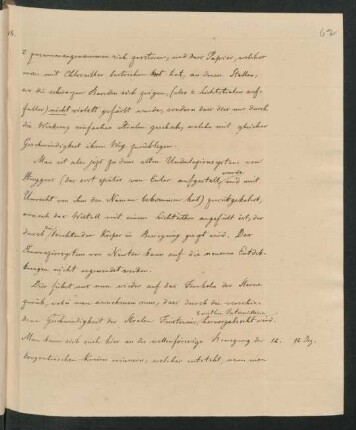 18.
62
2 zusammengenommen sich zerstören, und dass Papier, welches
man mit Chlorsilber bestrichen hat, an denen Stellen,
wo die schwarzen Banden sich zeigen, (also 2 Lichtstralen auf-
fallen) nicht violett gefärbt wurde, sondern dass dies nur durch
die Wirkung einfacher Stralen geschah, welche mit gleicher
Geschwindigkeit ihren Weg zurücklegen.
Man ist also jetzt zu dem alten Undulazionssystem von
Huyggens (das erst später von Euler aufgestellt wurde, und mit
Unrecht von ihm den Namen bekommen hat) zurückgekehrt,
wonach das Weltall mit einem Lichtäther angefüllt ist, der
durch leuchtende Körper in Bewegung gesezt wird. Das
Emanazionssystem von Newton kann auf die neueren Entdek-
kungen nicht angewendet werden.
Dies führt uns nun wieder auf das Funkeln der Sterne
zurück, wobei man annehmen muss, dass durch die verschie-
dene Geschwindigkeit der Stralen Finsterniss hervorgebracht wird.
Man kann sich auch hier an die wellenförmige Bewegung der
concentrischen Kreise erinnern, welche entsteht, wenn man